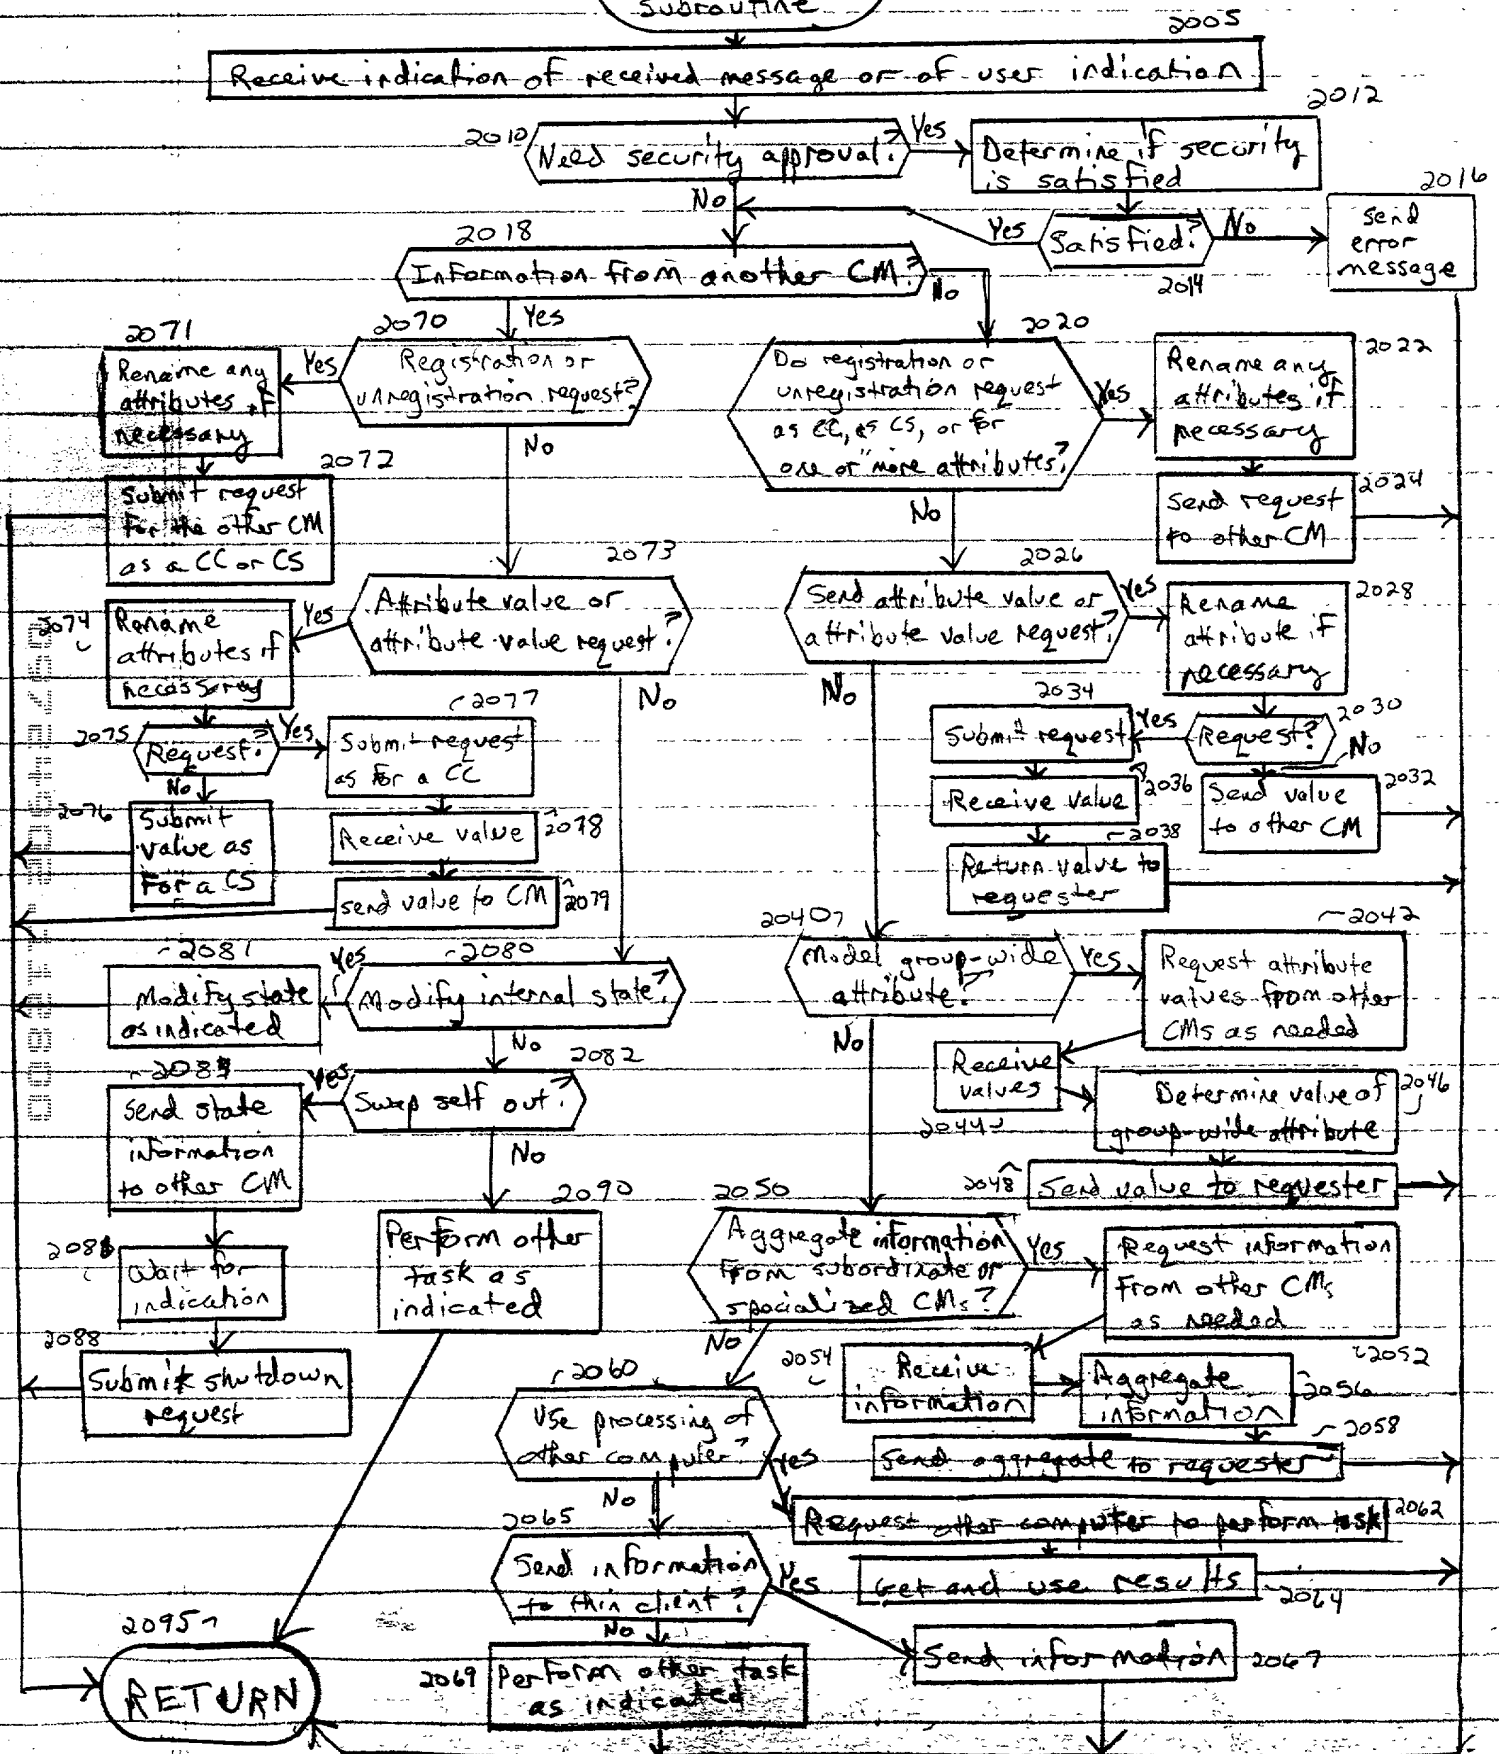 Subroutine
2005
Receive indication of received message or of user indication
2010
Need security approval?
Yes
No
2012
Determine if security
is satisfied
Satisfied?
2014
Yes
No
2016
send
error
message
2018
Information from another CM?
Yes
No
2070
Registration or
unregistration request?
Yes
No
2071
Rename any
attributes if
necessary
2072
Submit request
for the other CM
as a CC or CS
2073
Attribute value or
attribute value request?
Yes
No
2074
Rename
attributes if
necessary
2075
Request?
Yes
No
2076
Submit
value as
for a CS
2077
Submit request
as for a CC
2078
Receive value
2079
send value to CM
2080
Modify internal state?
Yes
No
2081
Modify state
as indicated
2082
Swap self out?
Yes
No
Send state
information
to other CM
Wait for
indication
2088
Submit shutdown
request
2090
Perform other
task as
indicated
2020
Do registration or
unregistration request
as CC, as CS, or for
one or more attributes?
Yes
No
2022
Rename any
attributes if
necessary
2024
Send request
to other CM
2026
Send attribute value or
attribute value request?
Yes
No
2028
Rename
attribute if
necessary
2030
Request?
Yes
No
2032
Send value
to other CM
2034
Submit request
2036
Receive value
2038
Return value to
requester
2040
Model group-wide
attribute?
Yes
No
2042
Request attribute
values from other
CMs as needed
Receive
values
2044
2046
Determine value of
group-wide attribute
2048
Send value to requester
2050
Aggregate information
from subordinate or
specialized CMs?
Yes
No
Request information
from other CMs
as needed
2052
2054
Receive
information
Aggregate
information
2056
2058
Send aggregate to requester
2060
Use processing of
other computer?
Yes
No
2062
Request other computer to perform task
Get and use results
2064
2065
Send information
to thin client?
Yes
No
Send information
2067
2069
Perform other task
as indicated
2095
RETURN